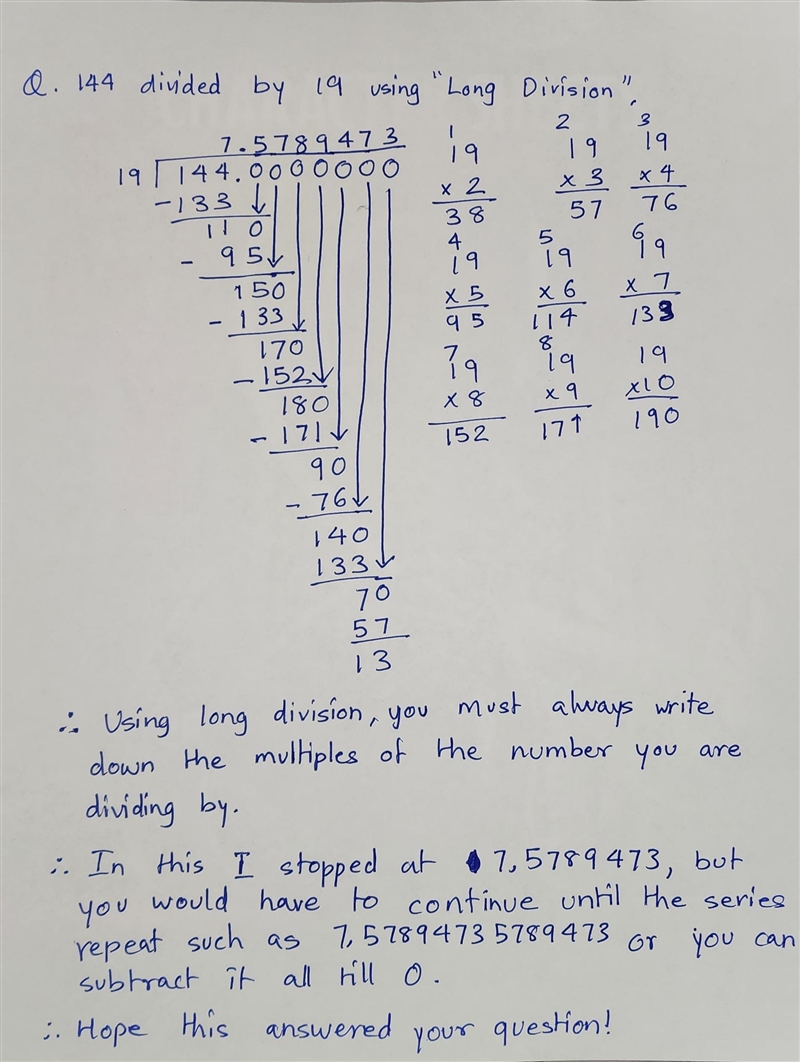 Q. 144 divided by 19 using "Long Division".
7.5789473
19 144.0000000
-133
110
- 95
150
- 133
170
- 152
180
- 171
90
- 76
140
133
70
57
13
1 2 3
19 19 19
x 2 x 3 x 4
38 57 76
4 5 6
19 19 19
x 5 x 6 x 7
95 114 133
7 8
19 19 19
x 8 x 9 x10
152 171 190
∴ Using long division, you must always write
down the multiples of the number you are
dividing by.
∴ In this I stopped at 7,5789473, but
you would have to continue until the series
repeat such as 7,57894735789473 or you can
subtract it all till 0.
∴ Hope this answered your question!